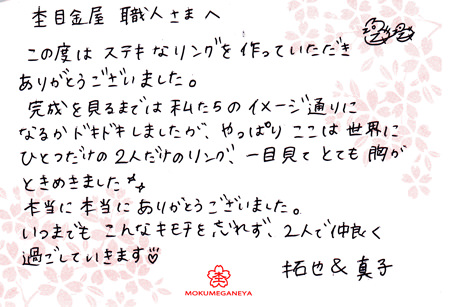 杢目金屋 職人さまへ
この度は ステキなリングを作っていただき
ありがとうございました。
完成を見るまでは 私たちのイメージ通りに
なるかドキドキしましたが、やっぱり ここは世界に
ひとつだけの2人だけのリング、一目見て とても 胸が
ときめきました
本当に本当にありがとうございました。
いつまでも こんなキモチを忘れず、2人で仲良く
過ごしていきます♡
拓也 & 真子
MOKUMEGANEYA